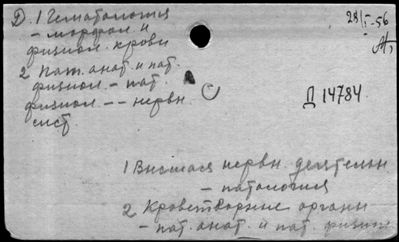 Д. 1 Гематология
- морфол. и
физиол. крови
2 Пат. анат. и пат.
физиол. - пат.
физиол. -- нервн.
сист.
28/I-56
Д 14784
1 Высшая нервн. деятельн
- патология
2 Кроветворные органы
- пат. анат. и пат. физиол